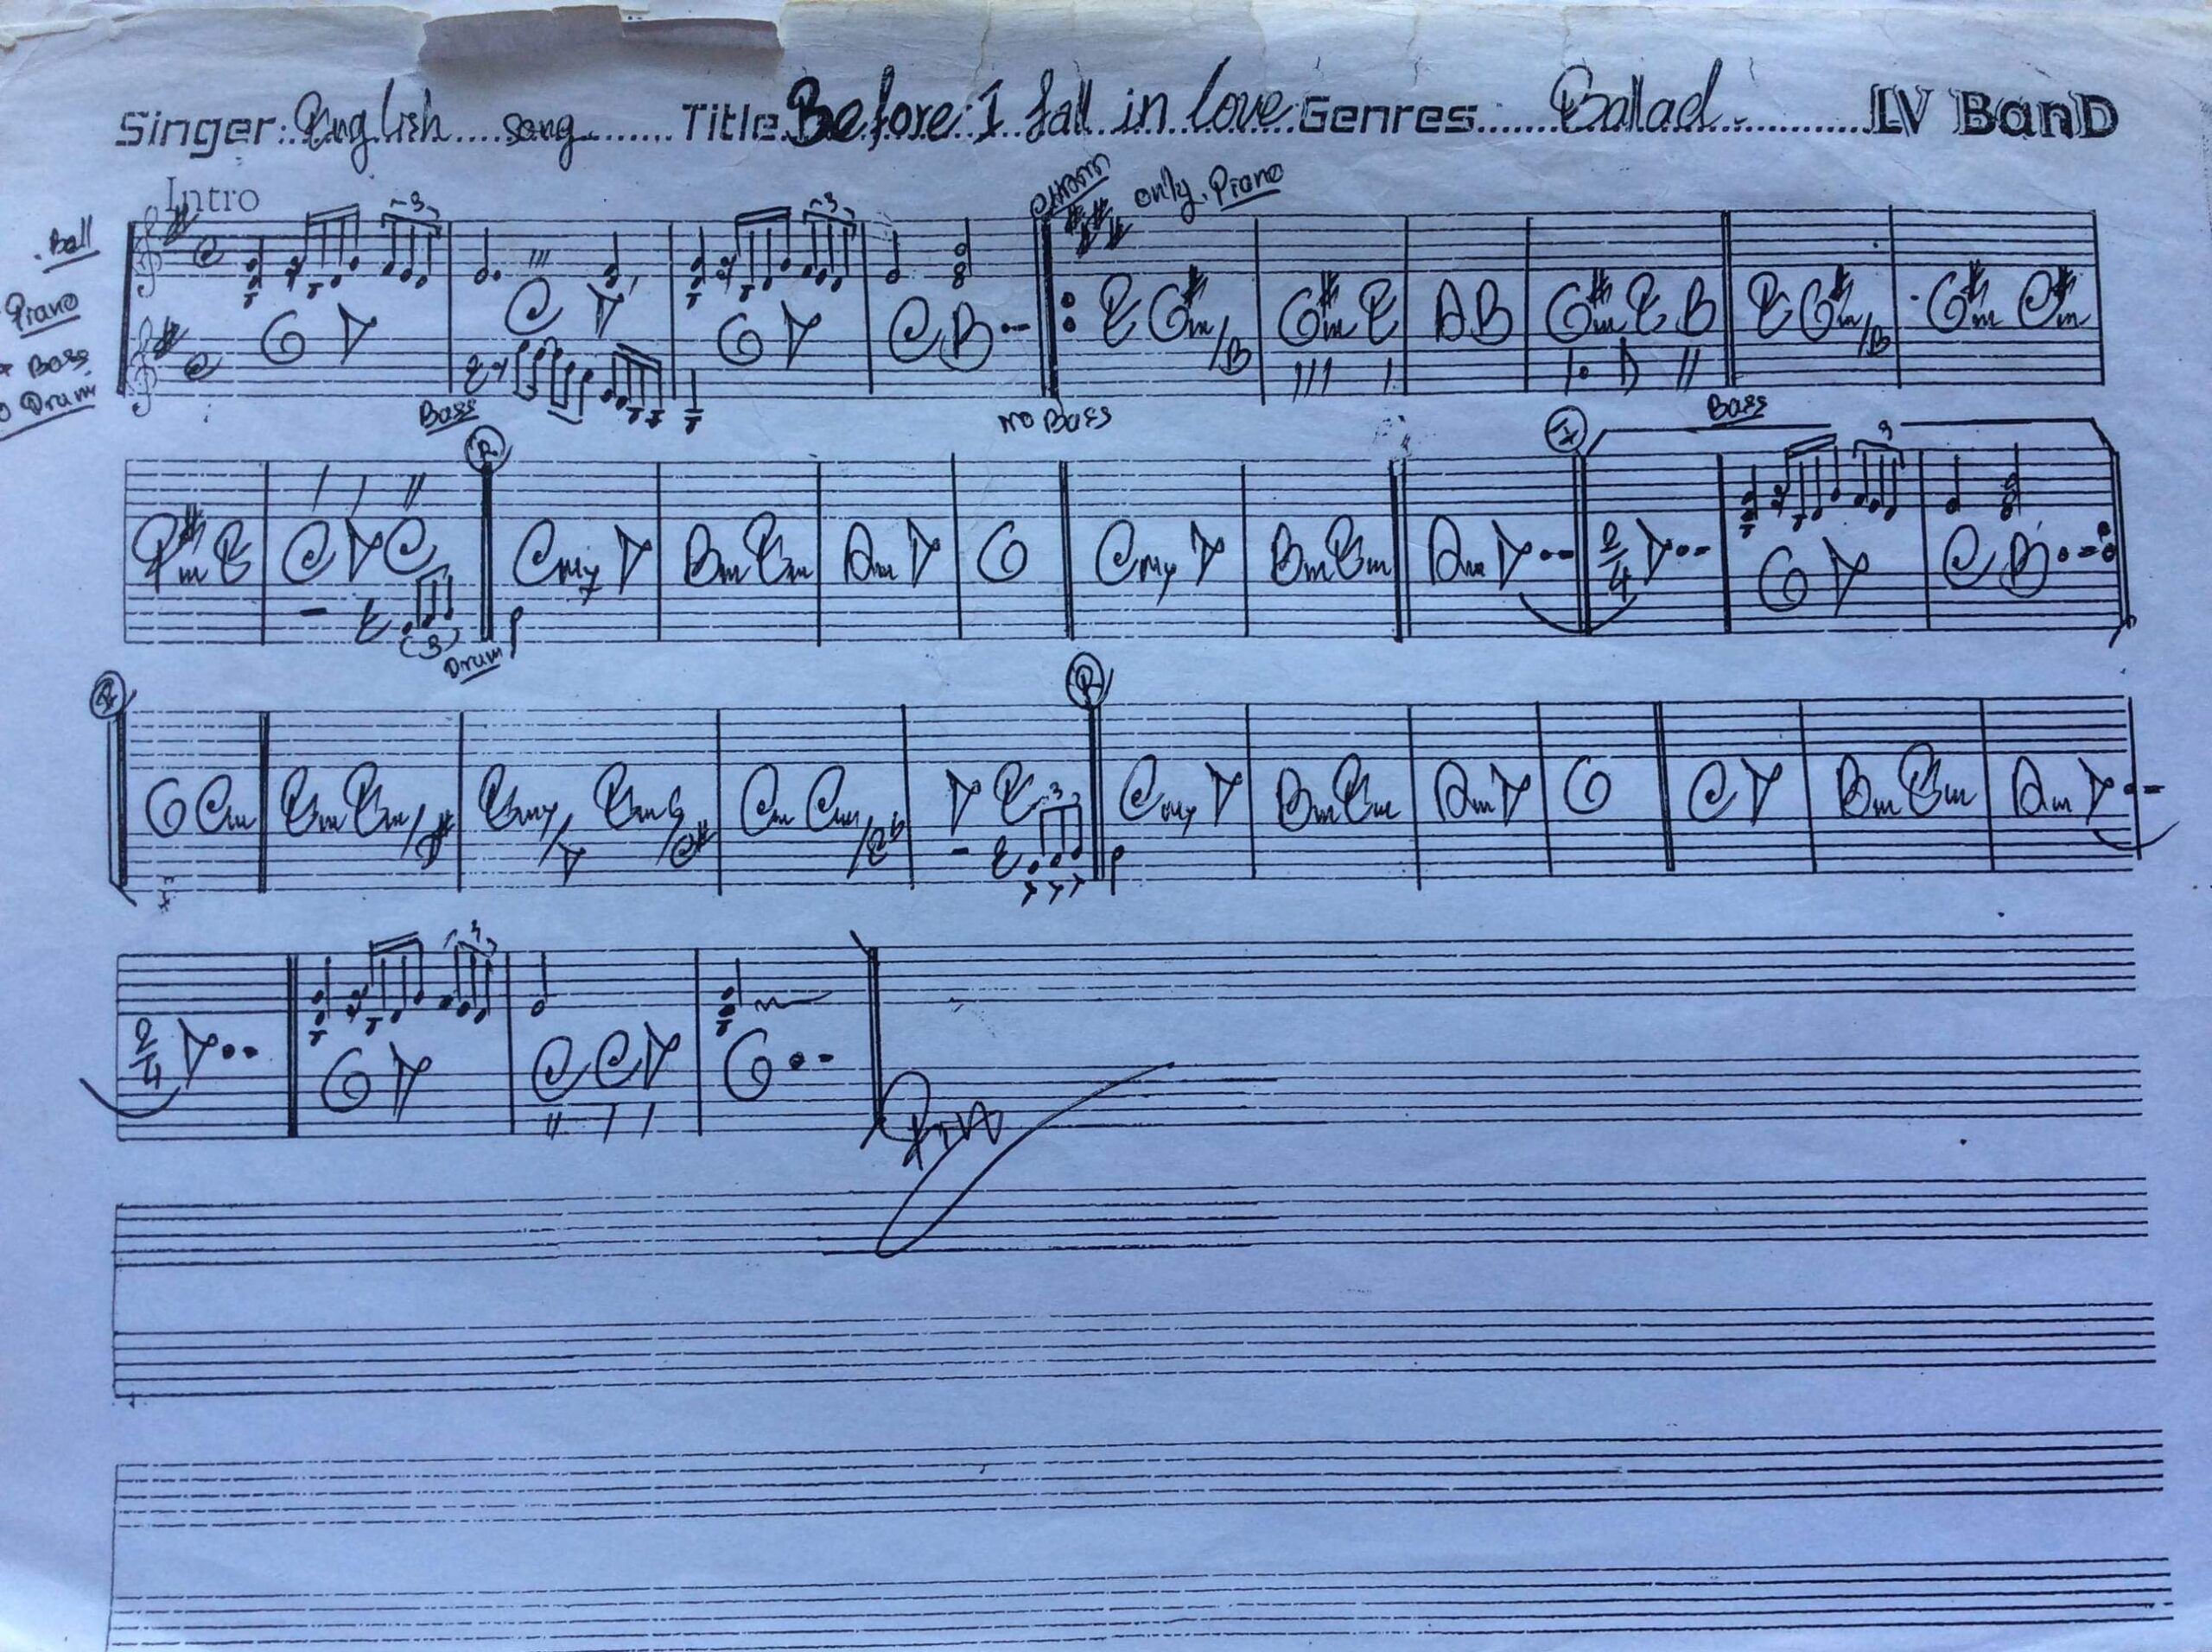 Singer: English song Title Before I fall in love Genres Ballad LV BanD
Intro
Bell
Piano
Bass
Drum
3 3 only Piano
G D C D G D C B E G#m/B G#m E A B G#m E B E G#m/B G#m C#m
Bass NO BASS
R I Bass 3
F#m E C D C Cmaj7 D Bm Em Am D G Cmaj7 D Bm Em Am D 2/4 D G D C B
3 Drum
R 3
G Cm Em Em/D# Em7/D Em6/C# Cm Cm/Eb D E Cmaj7 D Bm Em Am D G C D Bm Em Am D
3
2/4 D G D C C D G
Fin